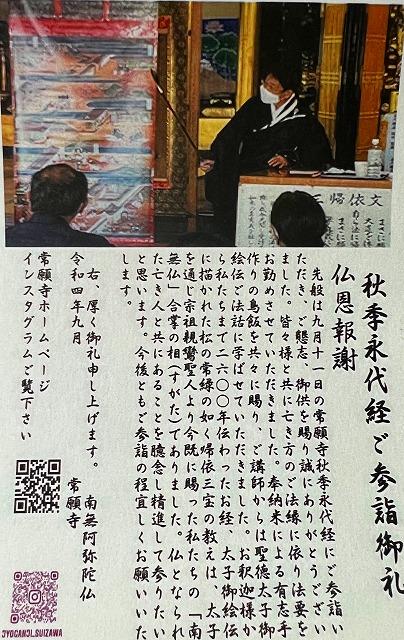 三帰依文
秋季永代経ご参詣御礼
仏恩報謝
先般は九月十一日の常願寺秋季永代経にご参詣い
ただき、ご懇志、御供を賜り誠にありがとうござい
ました。皆々様と共に亡き方のご法縁に依り法要を
お勤めさせていただきました。奉納米による有志手
作りの鳥飯を共々に賜り、ご講師からは聖徳太子御
絵伝ご法話に学ばせていただきました。お釈迦様か
ら私たちまで二六〇〇年伝わったお経、太子御絵伝
に描かれた松の常緑の如く帰依三宝の教えは、太子
を通じ宗祖親鸞聖人より今既に賜った私たちの「南
無仏」合掌の相(すがた)でありました。仏となられ
た亡き人と共にあることを憶念し精進して参りたい
と思います。今後ともご参詣の程宜しくお願いいた
します。
右、厚く御礼申し上げます。
令和四年九月
南無阿弥陀仏
常願寺
常願寺ホームページ
インスタグラムご覧下さい
JYOGANJI.SUIZAWA